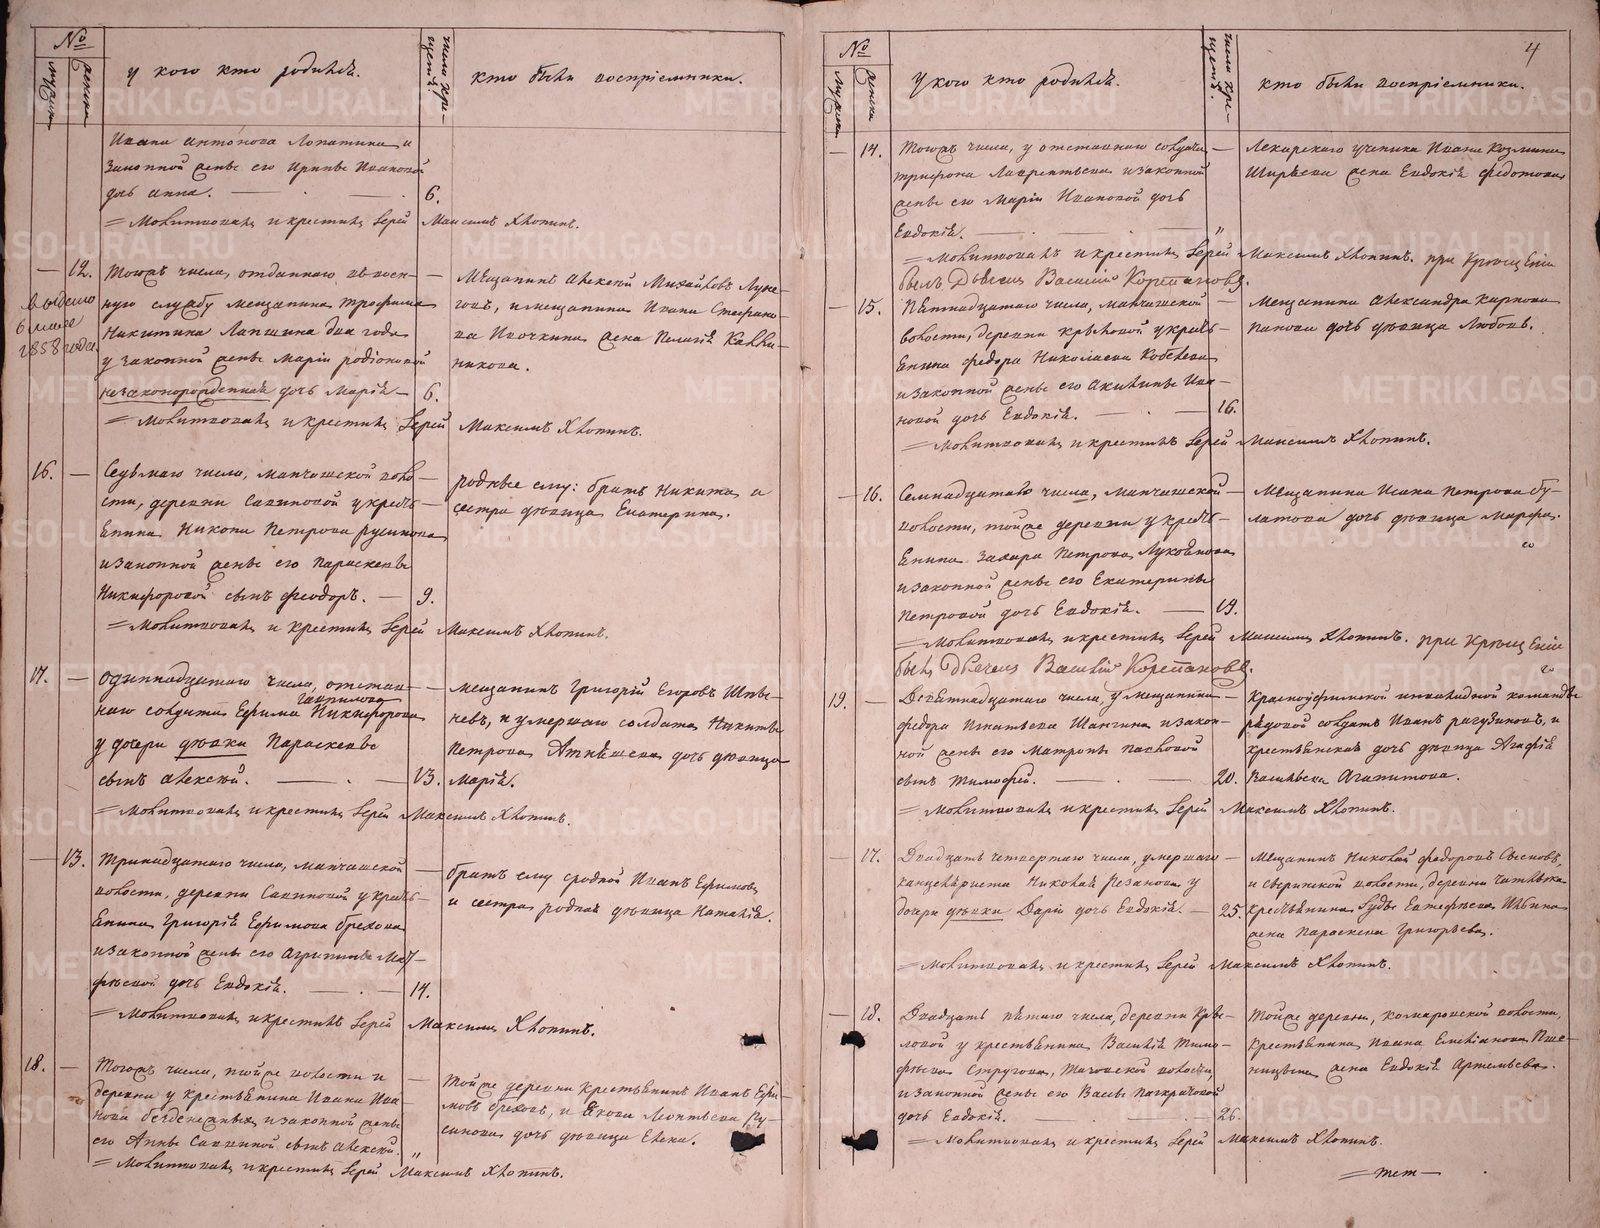 №
мужска
женска
у кого кто родился.
число крещенiй.
кто были воспрiемники.
Ивана Антонова Лопатина и
законной жены его Ирины Ивановой
дочь Анна. — 6.
= Молитвовалъ и крестилъ Iерей Максимъ Хлопинъ.
— 12. Тогожъ числа, отданнаго въ воен-
ную службу мещанина Трофима
Никитина Лапшина два года
у законной жены Марiи Родiоновой
незаконорожденная дочь Марiя — 6.
выдано
6 мая
1858 года.
— Мещанинъ Алексей Михайловъ
и мещанина Ивана Стефано-
ва жена Пелагiя
= Молитвовалъ и крестилъ Iерей Максимъ Хлопинъ.
16. — Седьмаго числа, Манчажской воло-
сти, деревни Савиновой у кресть-
янина Никона Петрова Русинова
и законной жены его Параскевы
Никифоровой сынъ Феодоръ. — 9.
родные ему: братъ Никита и
сестра девица Екатерина.
= Молитвовалъ и крестилъ Iерей Максимъ Хлопинъ.
17. — Одиннадцатаго числа, отстав-
Гаврилова
наго солдата Ефима Никифорова
у дочери девки Параскевы
сынъ Алексей. — 13.
— мещанинъ Григорiй Егоровъ
и умершаго солдата Никиты
Петрова дочь девица
Марiя.
= Молитвовалъ и крестилъ Iерей Максимъ Хлопинъ.
— 13. Тринадцатаго числа, Манчажской
волости, деревни Савиновой у кресть-
янина Григорiя Ефимова Брехова
и законной жены его Агрипины Мат-
феевой дочь Евдокiя. — 14.
— братъ ему сродной Иванъ Ефимовъ
и сестра родная девица Наталiя.
= Молитвовалъ и крестилъ Iерей Максимъ Хлопинъ.
18. — Тогожъ числа, тойже волости и
деревни у крестьянина Ивана Ива-
нова Безденежныхъ и законной жены
его Анны Саввиной сынъ Алексей. "
— Тойже деревни крестьянинъ Иванъ Ефи-
мовъ Бреховъ, и Якова Леонтьева Ру-
синова дочь девица Елена.
= Молитвовалъ и крестилъ Iерей Максимъ Хлопинъ.
4
№
мужска
женска
у кого кто родился.
число крещенiй.
кто были воспрiемники.
— 14. Тогожъ числа, у отставнаго солдата
Трифона Лаврентьева и законной
жены его Марiи Ивановой дочь
Евдокiя. — "
— Лекарскаго ученика Ивана Козмина
Ширяева жена Евдокiя Федотова
= Молитвовалъ и крестилъ Iерей Максимъ Хлопинъ. при Крещенiи
былъ Дьячекъ Василiй Корепановъ.
— 15. Пятнадцатаго числа, Манчажской
волости, деревни Крыловой у кресть-
янина Федора Николаева Кобелева
и законной жены его Акилины Ива-
новой дочь Евдокiя. — 16.
— Мещанина Александра Карпова
Панова дочь девица Любовь.
= Молитвовалъ и крестилъ Iерей Максимъ Хлопинъ.
— 16. Семнадцатаго числа, Манчажской
волости, тойже деревни у кресть-
янина Захара Петрова Луковникова
и законной жены его Екатерины
Петровой дочь Евдокiя. — 19.
— Мещанина Исака Петрова Бу-
латова дочь девица Марфа.
= Молитвовалъ и крестилъ Iерей Максимъ Хлопинъ. при Крещенiи
былъ Дьячекъ Василiй Корепановъ.
19. — Девятнадцатаго числа, у мещанина
Федора Игнатьева Шангина и закон-
ной жены его Матроны Павловой
сынъ Тимофей. — 20.
— Красноуфимской инвалидной команды
рядовой солдатъ Иванъ Рагузиновъ, и
крестьянская дочь девица Агафiя
Васильева Агапитова.
= Молитвовалъ и крестилъ Iерей Максимъ Хлопинъ.
— 17. Двадцать четвертаго числа, умершаго
канцеляриста Николая Рязанова у
дочери девки Дарiи дочь Евдокiя. — 25.
— Мещанинъ Николай Федоровъ
и волости, деревни
крестьянина Евстафьева
жена Параскева Григорьева.
= Молитвовалъ и крестилъ Iерей Максимъ Хлопинъ.
— 18. Двадцать пятаго числа, деревни Кры-
ловой у крестьянина Василiя Тимо-
феева Стругова, волости,
и законной жены его Вассы Панкратовой
дочь Евдокiя. — 26.
— Тойже деревни, Комаровской волости,
крестьянина Ивана Емелiанова Пше-
ницына жена Евдокiя Артемьева.
= Молитвовалъ и крестилъ Iерей Максимъ Хлопинъ.
METRIKI.GASO-URAL.RU